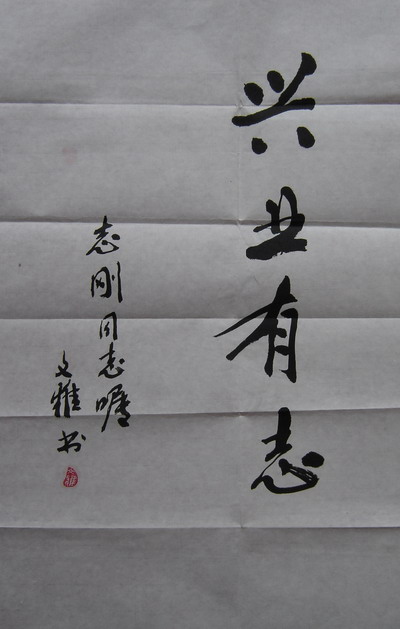 兴业有志
志刚同志嘱
文雅书